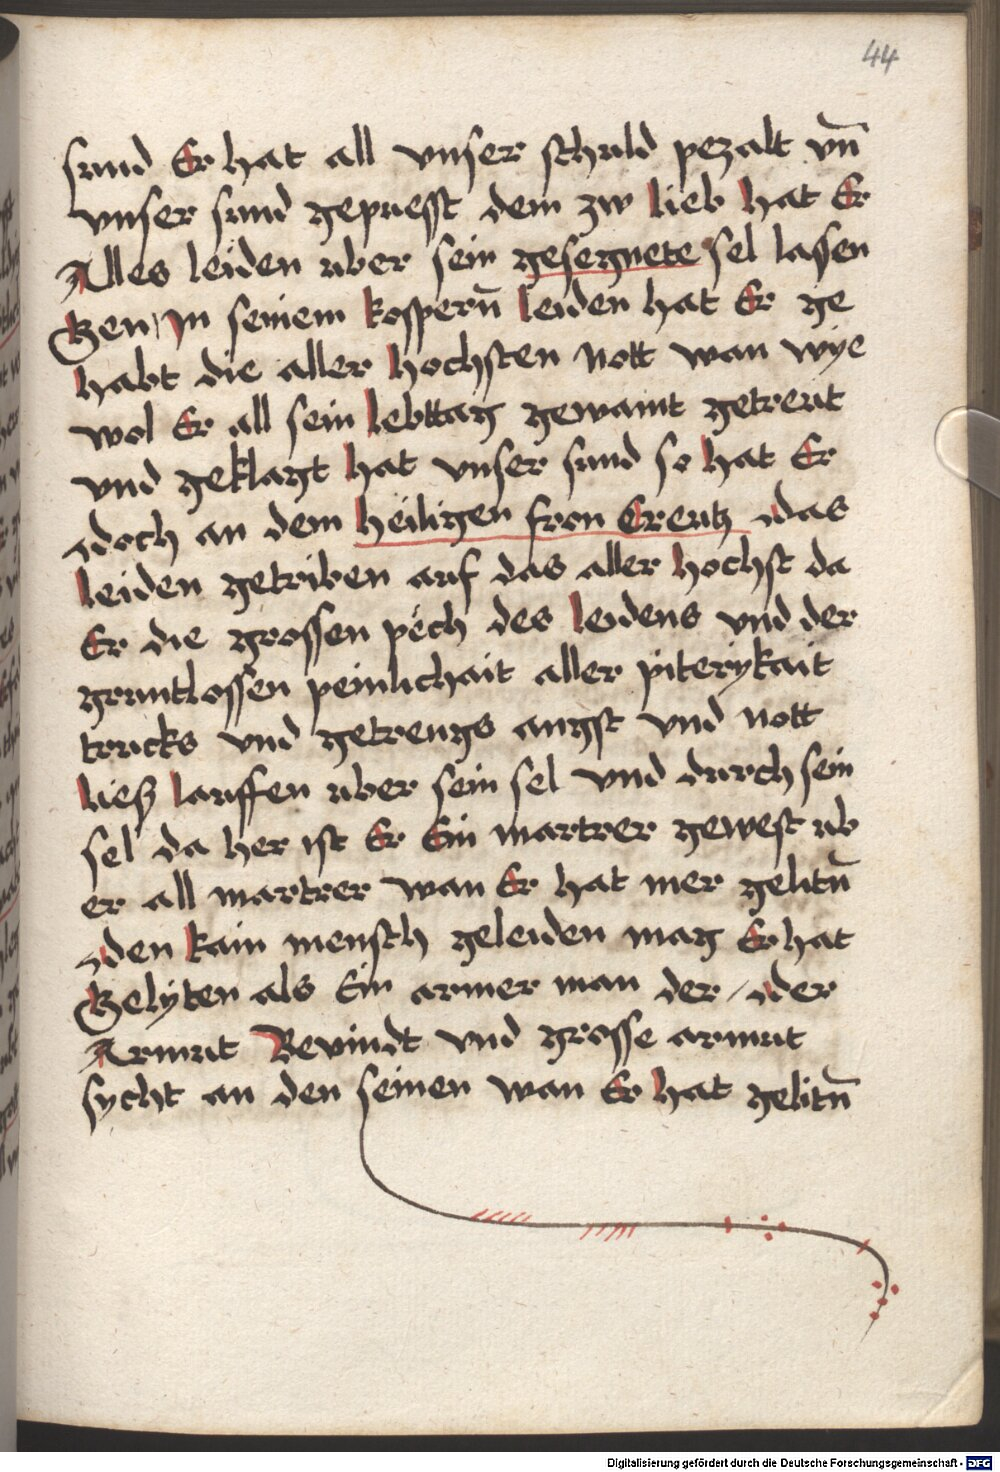 44
sund Er hat all vnser schuld pezalt vn̄
vnser sund gepuesst dem zw lieb hat Er
Alles leiden uber sein gesegnete sel lassen
Gen / Jn seinem kospern̄ leiden hat Er ge
habt die aller hochsten Nott wan wye
wol Er all sein lebttag gewaint getreut
vnd geklagt hat vnser sund so hat Er
doch an dem heiligen fron Creutz das
leiden getriben auf das aller hochst da
Er die grossen pëch des leidens vnd der
gruntlossen peinlichait aller piterykait
trucks vnd getrengs angst vnd nott
liesz lauffen uber sein sel vnd durch sein
sel da her ist Er Ein martrer gewest ub
er all martrer wan Er hat mer gelitn̄
den kain mensch geleiden mag Er hat
Gelyten als Ein armer man der / der
Armut Bevindt vnd grosse armut
sycht an den seinen wan Er hat gelitn̄
Digitalisierung gefördert durch die Deutsche Forschungsgemeinschaft - DFG